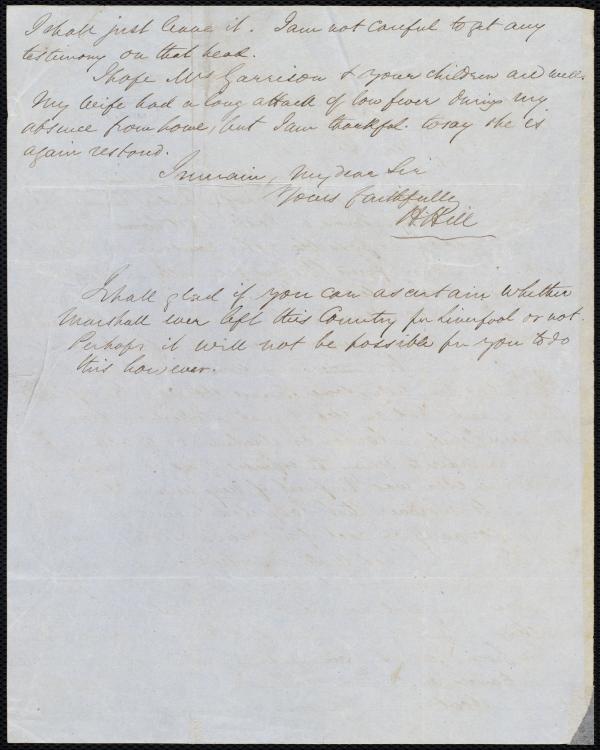 I shall just leave it. I am not careful to get any
testimony on that head.
I hope Mrs Garrison & your children are well.
My wife had a long attack of low fever during my
absence from home, but I am thankful to say she is
again restored.
I remain, my dear Sir
Yours faithfully
H Hill
I shall glad if you can ascertain whether
Marshall ever left this Country for Liverpool or not.
Perhaps it will not be possible for you to do
this however.